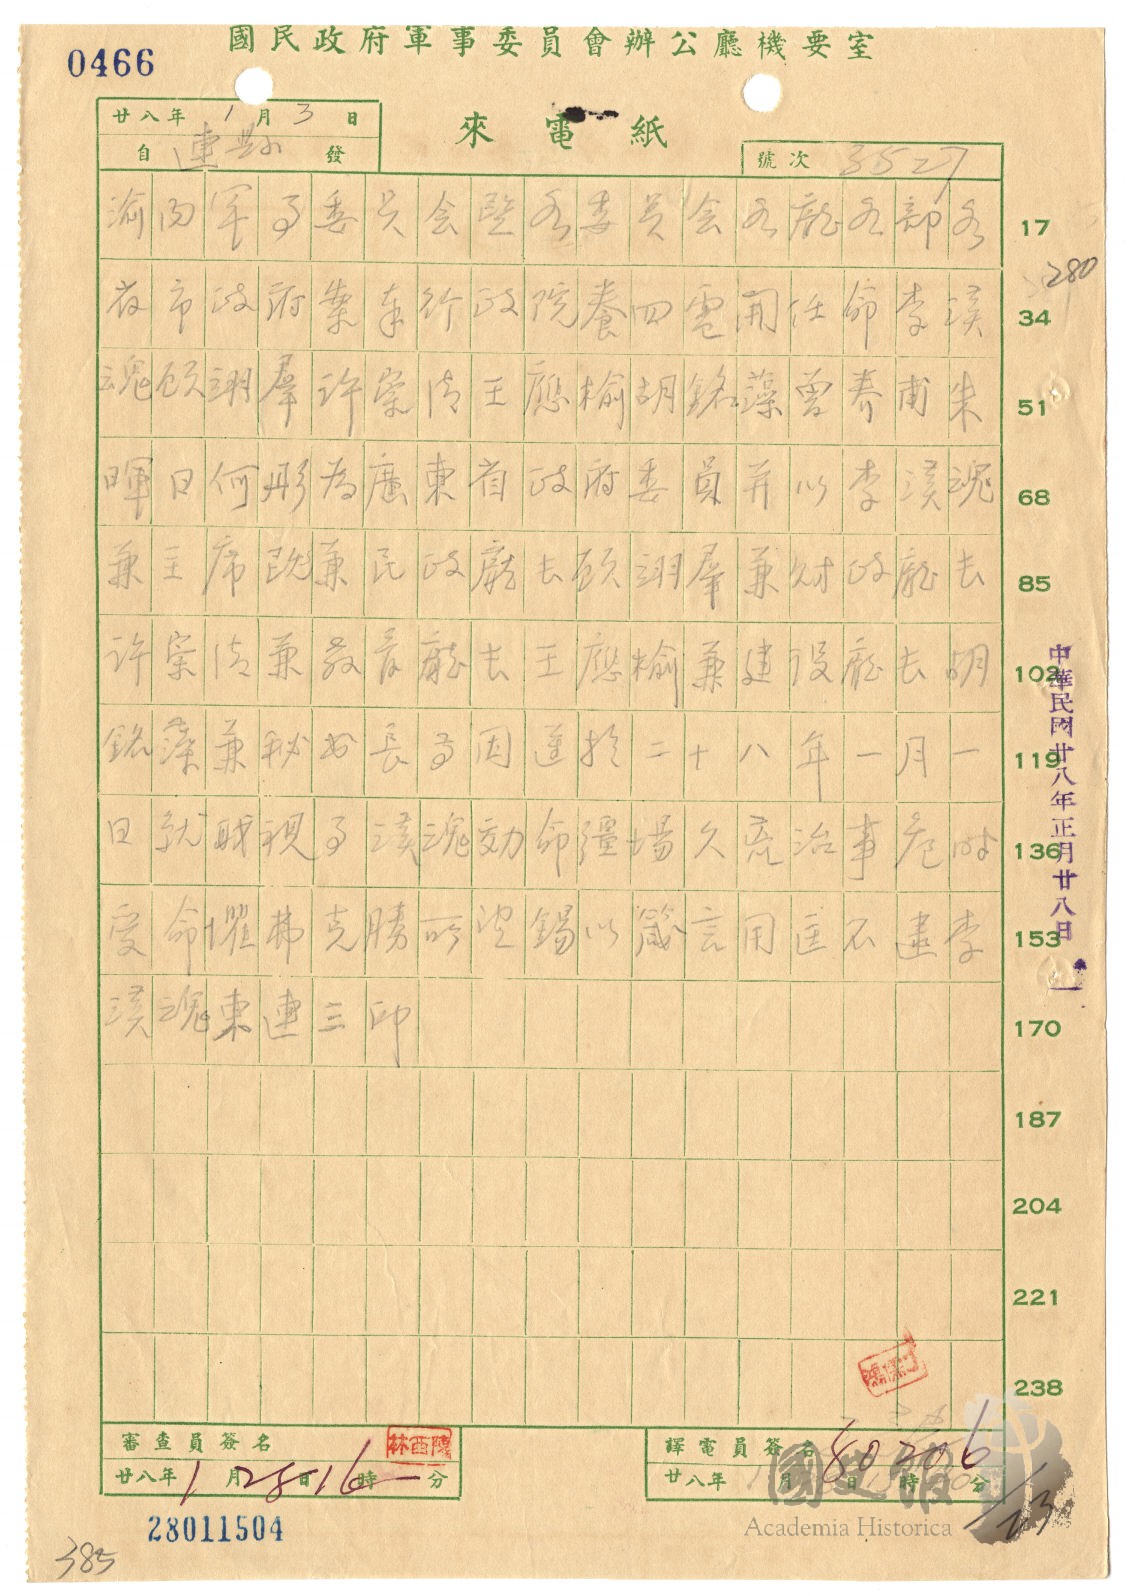 國民政府軍事委員會辦公廳機要室
0466
來電紙
廿八年1月3日
自連縣發
號次 3527
渝內軍事委員会暨各委員会各廳各部各 17
280
省市政府案奉行政院養四電開任命李漢 34
魂顧翊羣許崇清王應榆胡銘藻曾养甫朱 51
暉日何彤為廣東省政府委員并以李漢魂 68
兼主席既兼民政廳長顧翊羣兼財政廳長 85
許崇清兼教育廳長王應榆兼建設廳長胡 102
銘藻兼秘書長等因遵於二十八年一月一 119
日就職視事漢魂効命疆場久荒治事危時 136
受命懼弗克勝所望錫以箴言用匡不逮李 153
漢魂東連三印 170
187
204
221
238
中華民國廿八年正月廿八日
審查員簽名
陳西林
廿八年1月28日16時分
譯電員簽名
廿八年 月 日 時 分
80206
28011504
385
1/23
國史館
Academia Historica